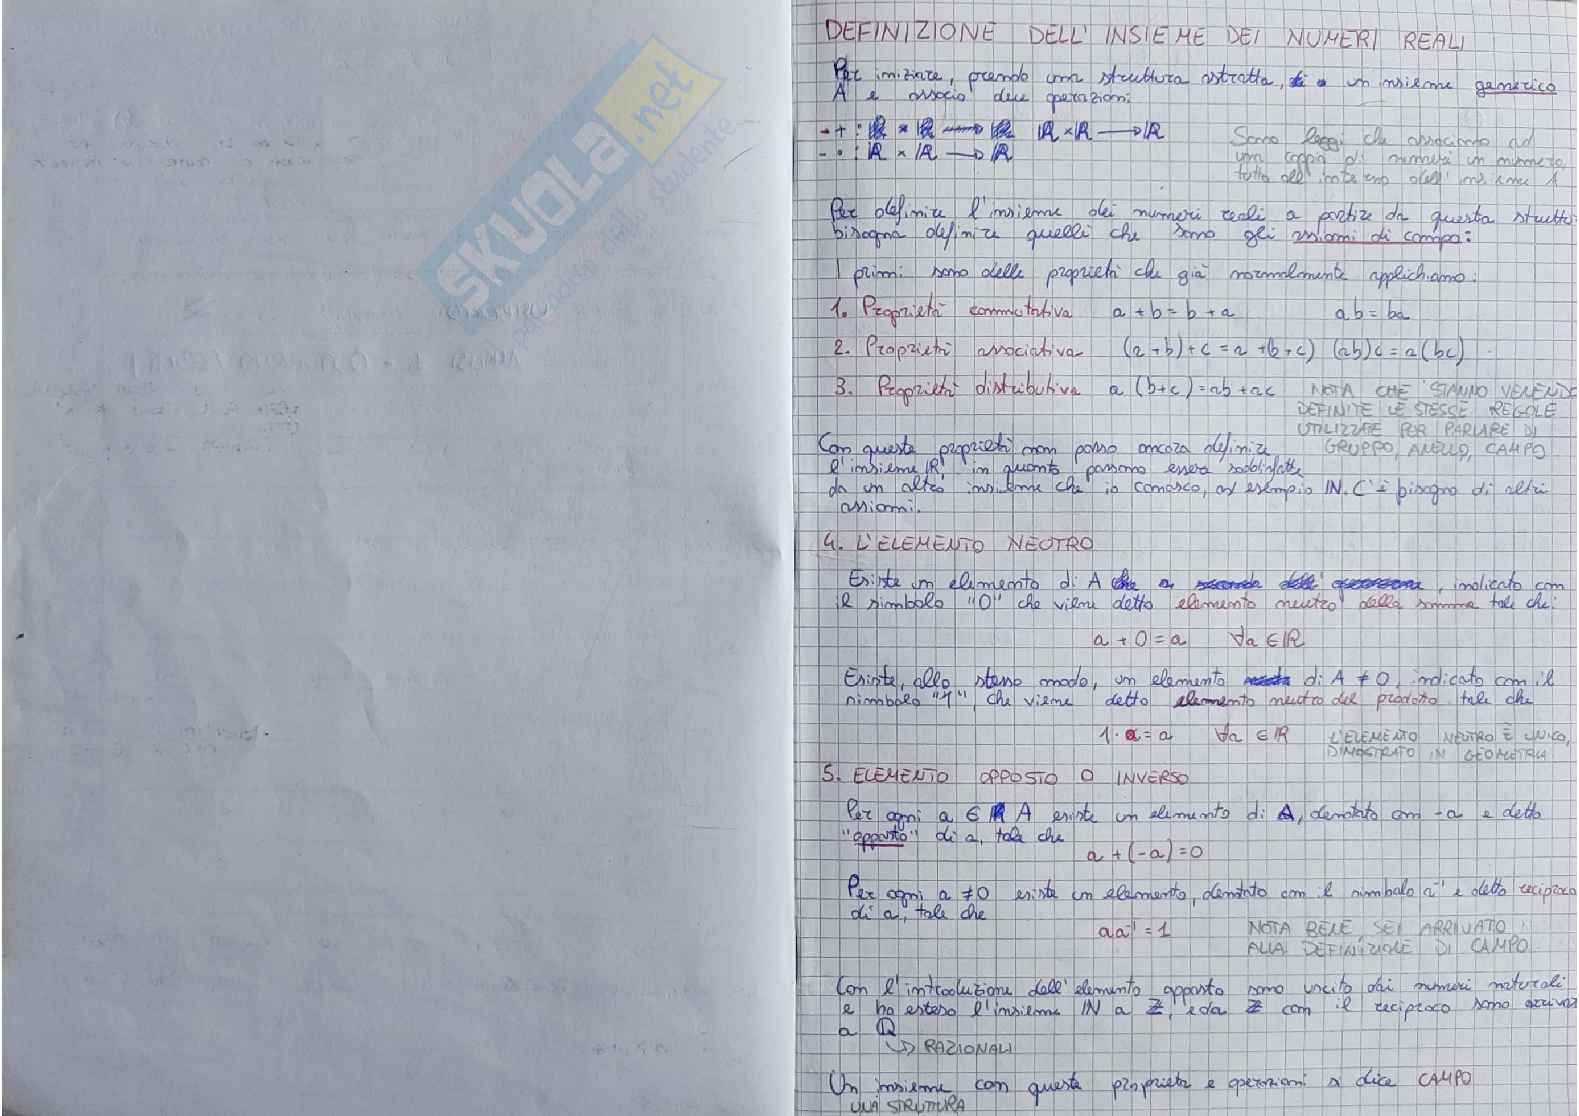 SKUOLA.net
il paradiso dello studente
DEFINIZIONE DELL'INSIEME DEI NUMERI REALI
Per iniziare, prendo come struttura astratta, un insieme generico
A e associo due operazioni:
- + : ℝ × ℝ → ℝ
- • : ℝ × ℝ → ℝ
Sono leggi che associano ad
una coppia di numeri un numero
tutto all'interno dell'insieme A
Per definire l'insieme dei numeri reali a partire da questa struttu
bisogna definire quelli che sono gli assiomi di campo:
I primi sono delle proprietà che già normalmente applichiamo:
1. Proprietà commutativa a + b = b + a ab = ba
2. Proprietà associativa (a + b) + c = a + (b + c) (ab)c = a(bc)
3. Proprietà distributiva a (b+c) = ab + ac
NOTA CHE STANNO VENENDO
DEFINITE LE STESSE REGOLE
UTILIZZATE PER PARLARE DI
GRUPPO, ANELLO, CAMPO
Con queste proprietà non posso ancora definire
l'insieme ℝ, in quanto possono essere soddisfatte
da un altro insieme che io conosco, ad esempio ℕ. C'è bisogno di altri
assiomi.
4. L'ELEMENTO NEUTRO
Esiste un elemento di A, indicato con
il simbolo "0" che viene detto elemento neutro della somma tale che:
a + 0 = a ∀a ∈ ℝ
Esiste, allo stesso modo, un elemento di A ≠ 0, indicato con il
simbolo "1", che viene detto elemento neutro del prodotto tale che
1 · a = a ∀a ∈ ℝ
L'ELEMENTO NEUTRO È UNICO,
DIMOSTRATO IN GEOMETRIA
5. ELEMENTO OPPOSTO O INVERSO
Per ogni a ∈ A esiste un elemento di A, denotato con -a e detto
"opposto" di a, tale che
a + (-a) = 0
Per ogni a ≠ 0 esiste un elemento, denotato con il simbolo a⁻¹ e detto reciproco
di a, tale che
aa⁻¹ = 1
NOTA BENE, SEI ARRIVATO
ALLA DEFINIZIONE DI CAMPO
Con l'introduzione dell'elemento opposto sono uscito dai numeri naturali
e ho esteso l'insieme ℕ a ℤ, e da ℤ con il reciproco sono arrivat
a ℚ
↳ RAZIONALI
Un insieme con queste proprietà e operazioni si dice CAMPO
UNA STRUTTURA